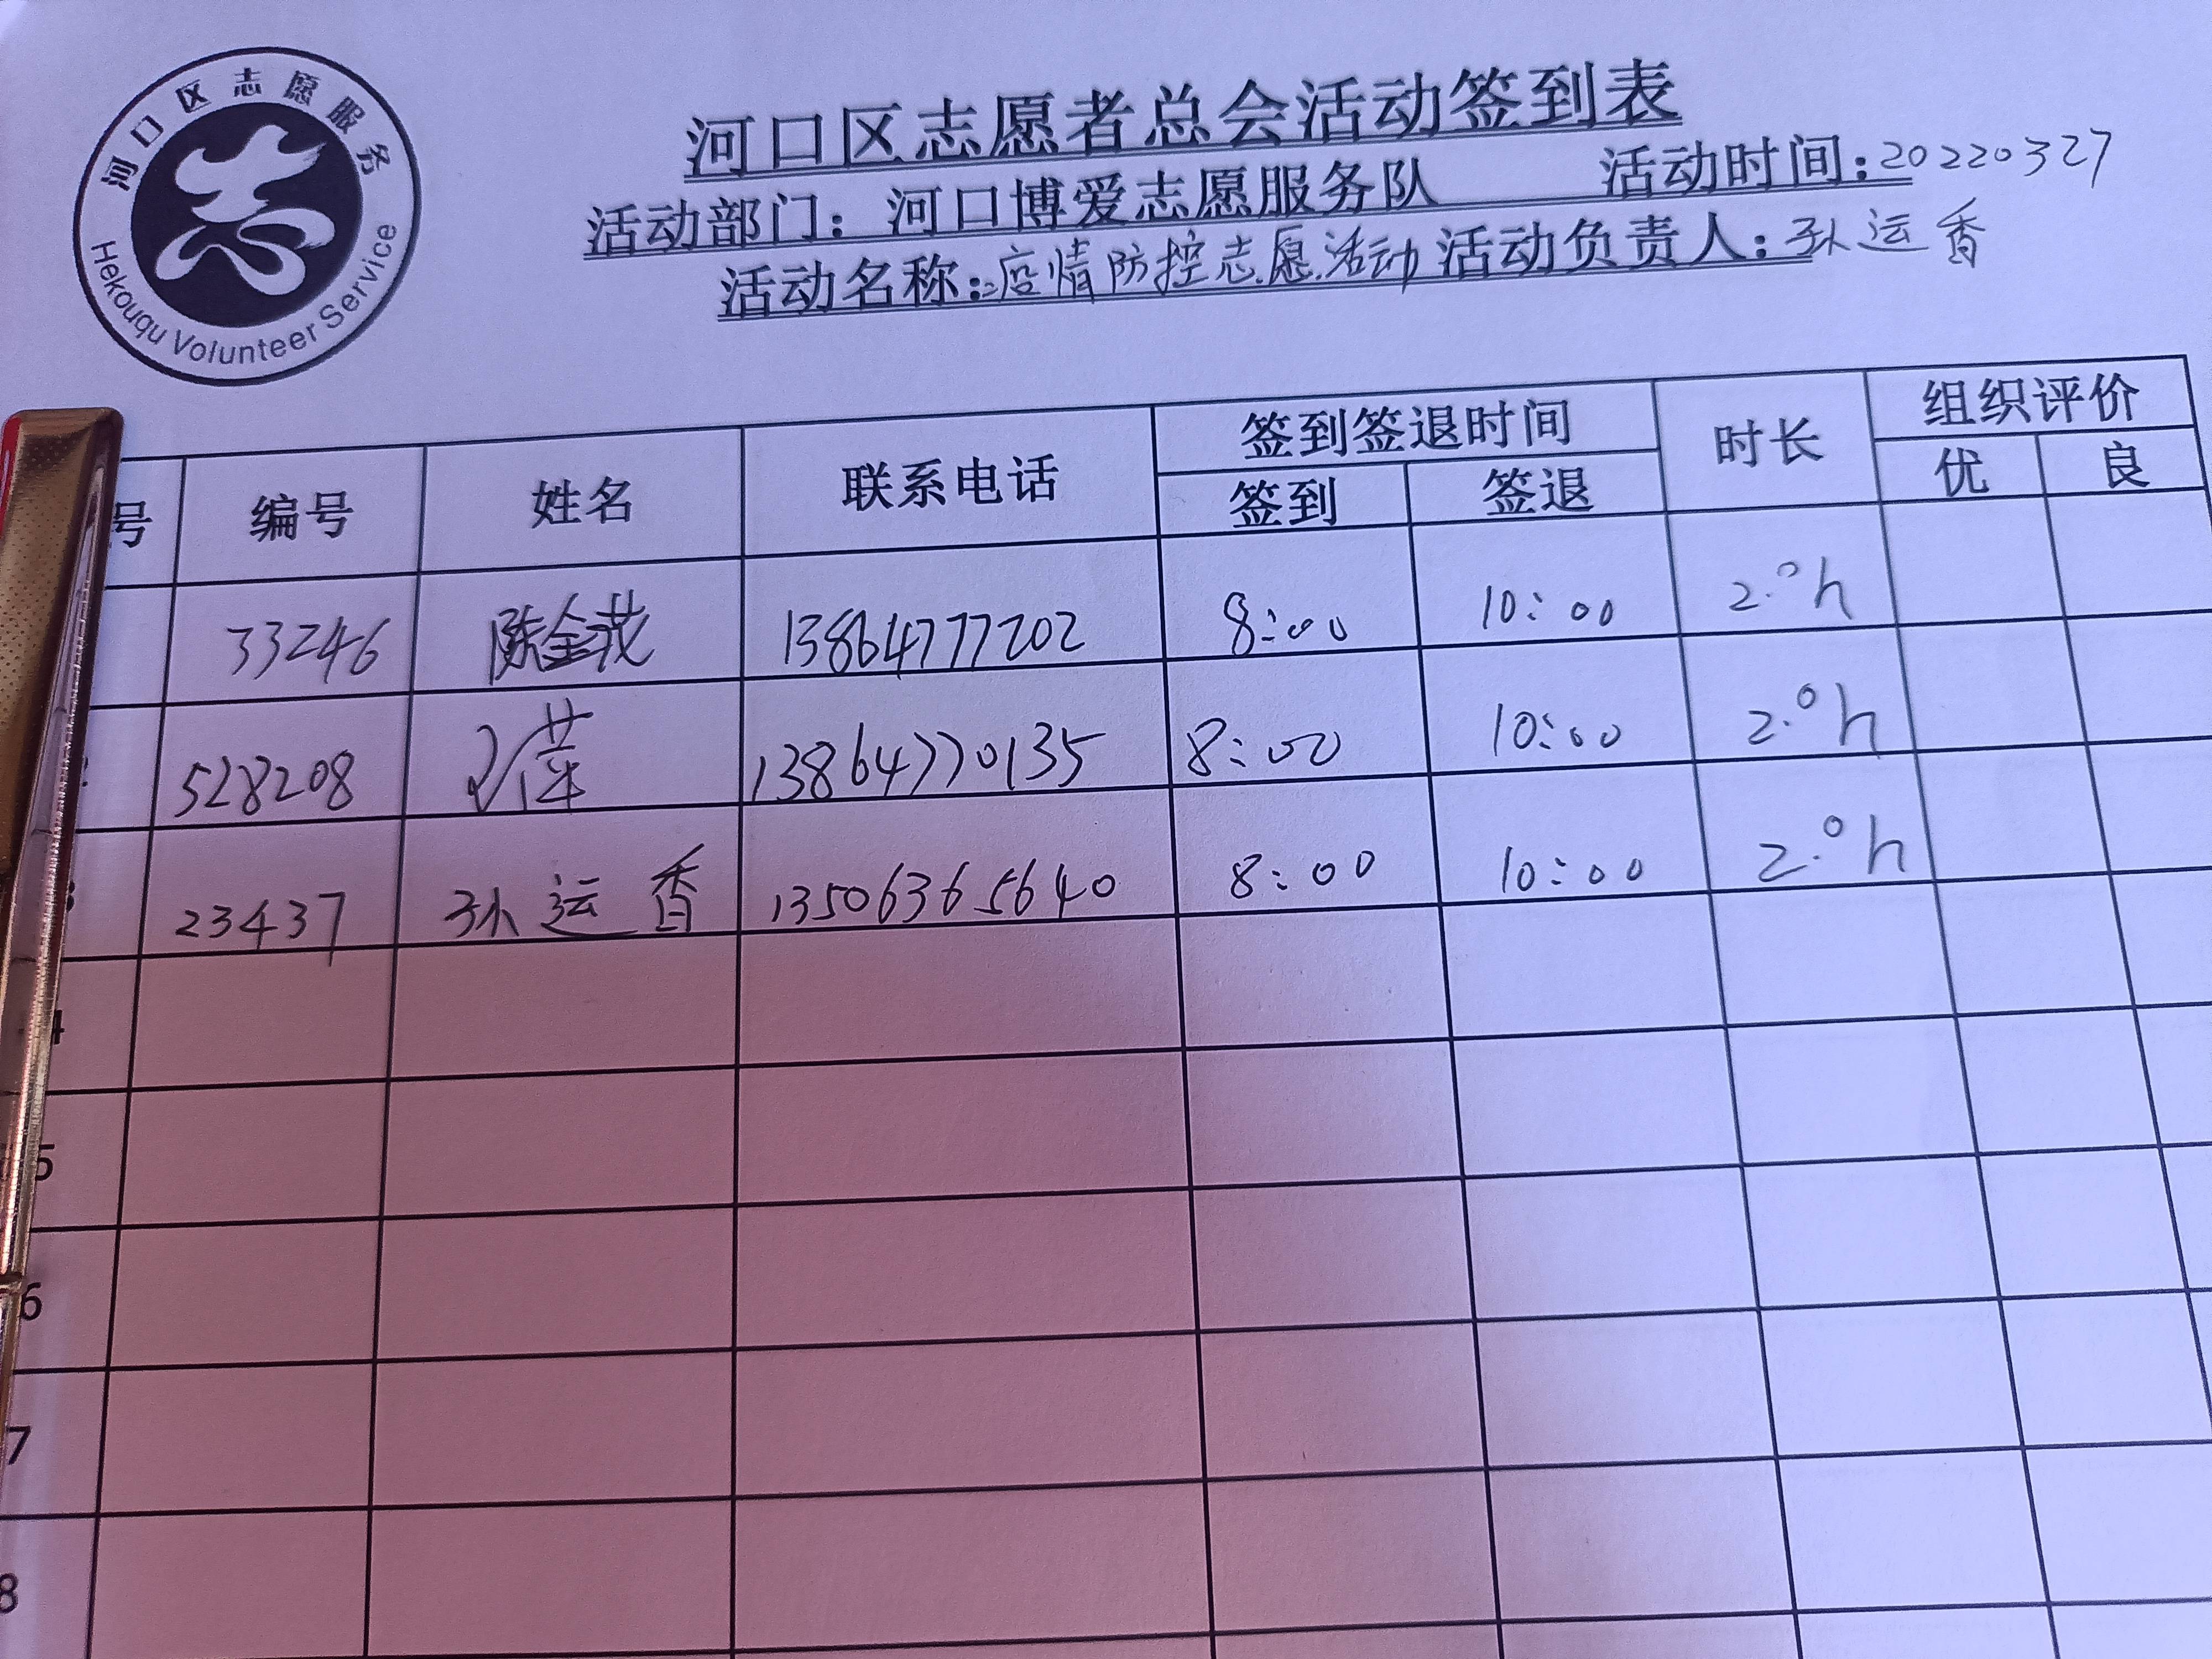 河口区志愿服务
Hekouqu Volunteer Service
河口区志愿者总会活动签到表
活动部门：河口博爱志愿服务队 活动时间：20220327
活动名称：疫情防控志愿活动 活动负责人：孙运香
号 编号 姓名 联系电话 签到签退时间 时长 组织评价
签到 签退 优 良
33246 陈金花 13864777202 8:00 10:00 2.0h
528208 13864770135 8:00 10:00 2.0h
3 23437 孙运香 13506365640 8:00 10:00 2.0h
4
5
6
7
8